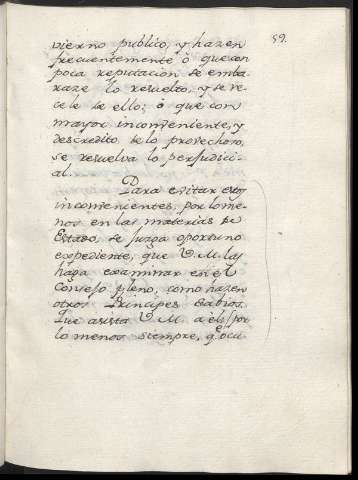 59.
vierno publico, y hazen
frecuentemente ó que con
poca reputacion se emba
raze lo resuelto, y se re-
cele de ello; ó que con
mayor inconveniente, y
descredito de lo provechoso,
se resuelva lo perjudici-
al.
Para evitar estos
inconvenientes, por lo me-
nos en las materias de
Estado, se juzga oportuno
expediente, que V. M. las
haga examinar en el
Consejo pleno, como hazen
otros Principes Sabios.
Que asista V. M. a èl (por
lo menos siempre, q̃ ocu